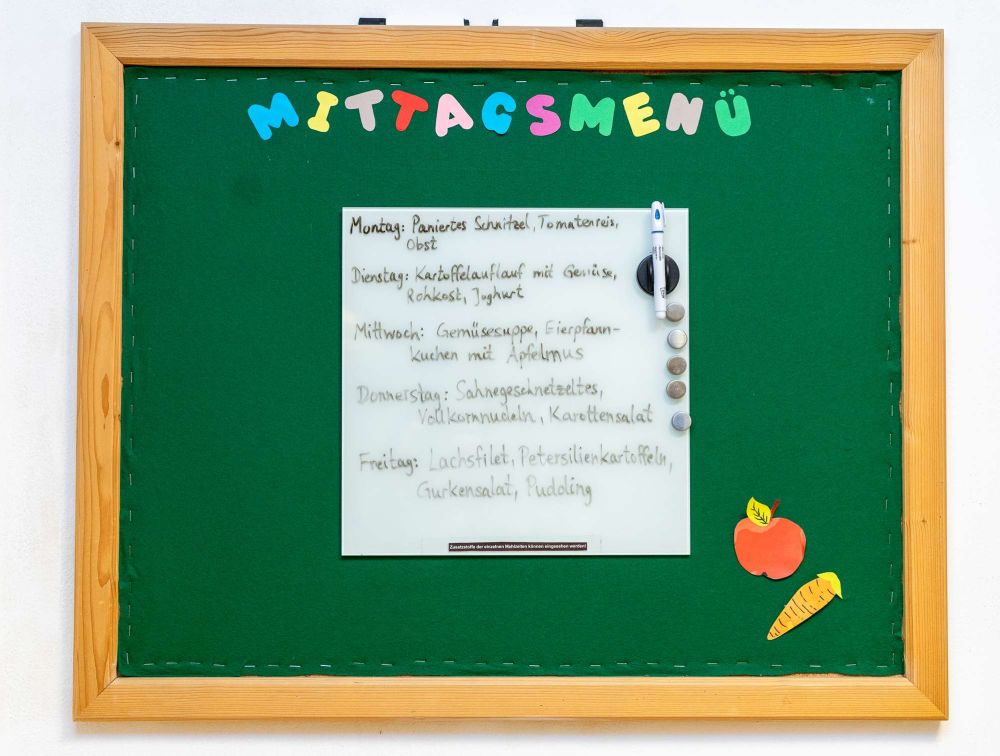 MITTAGSMENÜ
Montag: Paniertes Schnitzel, Tomatenreis,
Obst
Dienstag: Kartoffelauflauf mit Gemüse,
Rohkost, Joghurt
Mittwoch: Gemüsesuppe, Eierpfann-
kuchen mit Apfelmus
Donnerstag: Sahnegeschnetzeltes,
Vollkornnudeln, Karottensalat
Freitag: Lachsfilet, Petersilienkartoffeln,
Gurkensalat, Pudding
Zusatzstoffe der einzelnen Mahlzeiten können eingesehen werden!